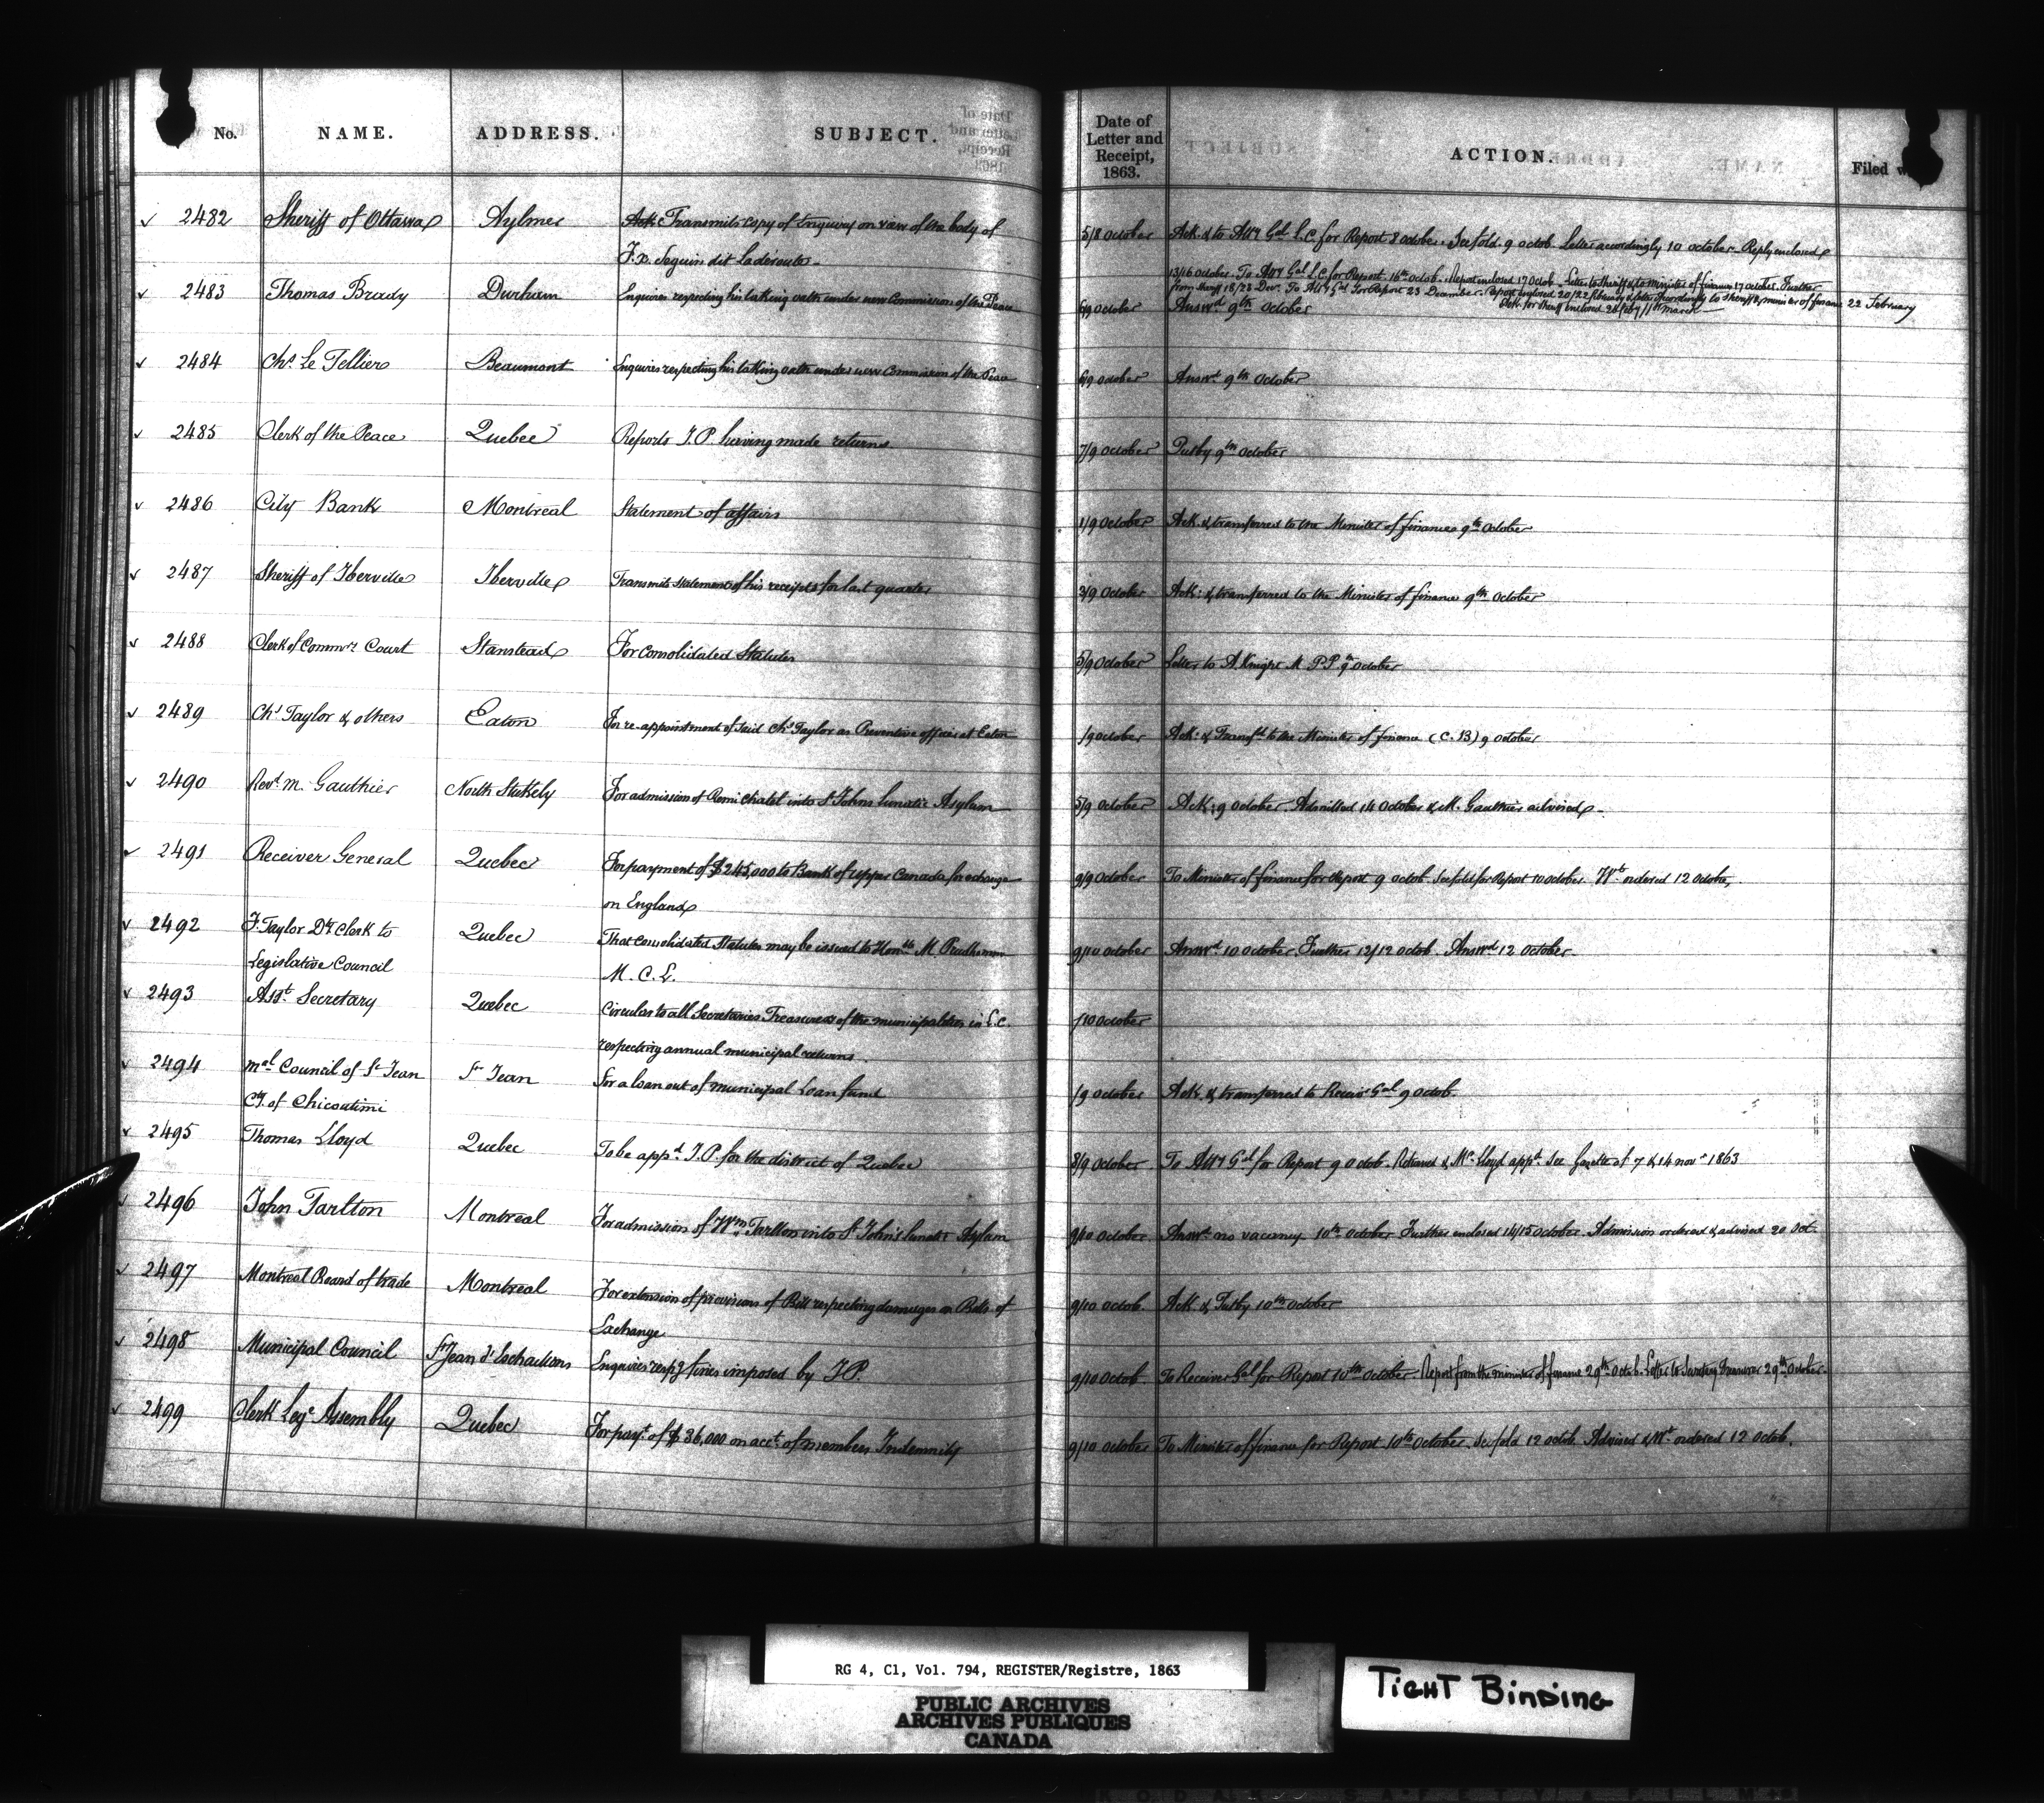 No. NAME. ADDRESS. SUBJECT. Date of Letter and Receipt, 1863. ACTION. Filed
2482 Sheriff of Ottawa Aylmer Transmits copy of Enquiry on view of the body of 5/8 October Ack. & to Atty Gal L.C. for Report 8 octobr. See fold. 9 octob. Letter accordingly 10 october. Reply enclosed
F. X. Seguin dit Laderoute 13/16 October. To Atty Gal L.C. for Report 16th octob. Report enclosed 17 Octob. Letter to Sheriff & to minister of finance 17 octob. Further
from Sheriff 18/23 Decr. To Atty Gal for Report 23 December. Report enclosed 20/22 february & letter accordingly to Sheriff & minister of finance 22 February
2483 Thomas Brady Durham Enquires respecting his taking oath under new Commission of the Peace 6/9 October Answd. 9th October
2484 Chs. Le Tellier Beaumont Enquires respecting his taking oath under new Commission of the Peace 6/9 October Answd. 9th October
2485 Clerk of the Peace Quebec Reports J.P. having made returns 7/9 October Putby 9th October
2486 City Bank Montreal Statement of affairs 1/9 October Ack. & transferred to the Minister of finance 9th October
2487 Sheriff of Iberville Iberville Transmits statement of his receipts for last quarter 3/9 October Ack: & transferred to the Minister of finance 9th October
2488 Clerk of Commrs. Court Stanstead For Consolidated Statutes 5/9 October Letter to A. Knight M.P.P. 9 October
2489 Chs Taylor & others Eaton For re-appointment of said Chs Taylor as Preventive officer at Eaton /9 October Ack: & Transfd. to the Minister of finance (C. B) 9 October
2490 Revd. M. Gauthier North Stukely For admission of Remi Chatel into St Johns Lunatic Asylum 5/9 October Ack: 9 October. Admitted 14 October & M. Gauthier advised.
2491 Receiver General Quebec For payment of $245,000 to Bank of Upper Canada for exchange 9/9 October To Minister of finance for Report 9 octob. See fold for Report 10 October. Wt. ordered 12 October,
on England
2492 F. Taylor Dy. Clerk to Quebec That Consolidated Statutes may be issued to Honble M. Prudhomme 9/10 October Answd. 10 October. Further 12/12 octob. Answd 12 October.
Legislative Council M. C. L.
2493 Asst. Secretary Quebec Circulars to all Secretaries Treasurers of the municipalities in L.C. /10 October
respecting annual municipal returns.
2494 Mal. Council of St Jean St Jean For a loan out of municipal Loan fund /9 October Ack. & transferred to Receiv. Gal 9 octob.
Cty. of Chicoutimi
2495 Thomas Lloyd Quebec To be appd. J.P. for the district of Quebec 8/9 October To Atty Gal for Report 9 Octob. Returned & Mr. Lloyd appd. See Gazette of 7 & 14 novr 1863
2496 John Tarlton Montreal For admission of Wm. Tarlton into St John's Lunatic Asylum 9/10 October Answd. no vacancy 10th October. Further enclosed 14/15 October. Admission ordered & advised 20 Oct.
2497 Montreal Board of trade Montreal For extension of provisions of Bill respecting damages on Bills of 9/10 octob. Ack & Putby 10th October
Exchange
2498 Municipal Council St Jean d'Eschaillons Enquires respg. fines imposed by J.P. 9/10 Octob To Receiver Gal for Report 10th October. Report from the minister of finance 29th Octob. Letter to Secretary Treasurer 29th October.
2499 Clerk Lege Assembly Quebec For payt. of $36,000 on acct. of members Indemnity 9/10 October To Minister of finance for Report 10th October. See fold 12 octob. Advised & Wt. ordered 12 Octob.
RG 4, C1, Vol. 794, REGISTER/Registre, 1863
PUBLIC ARCHIVES
ARCHIVES PUBLIQUES
CANADA
TIGHT BINDING